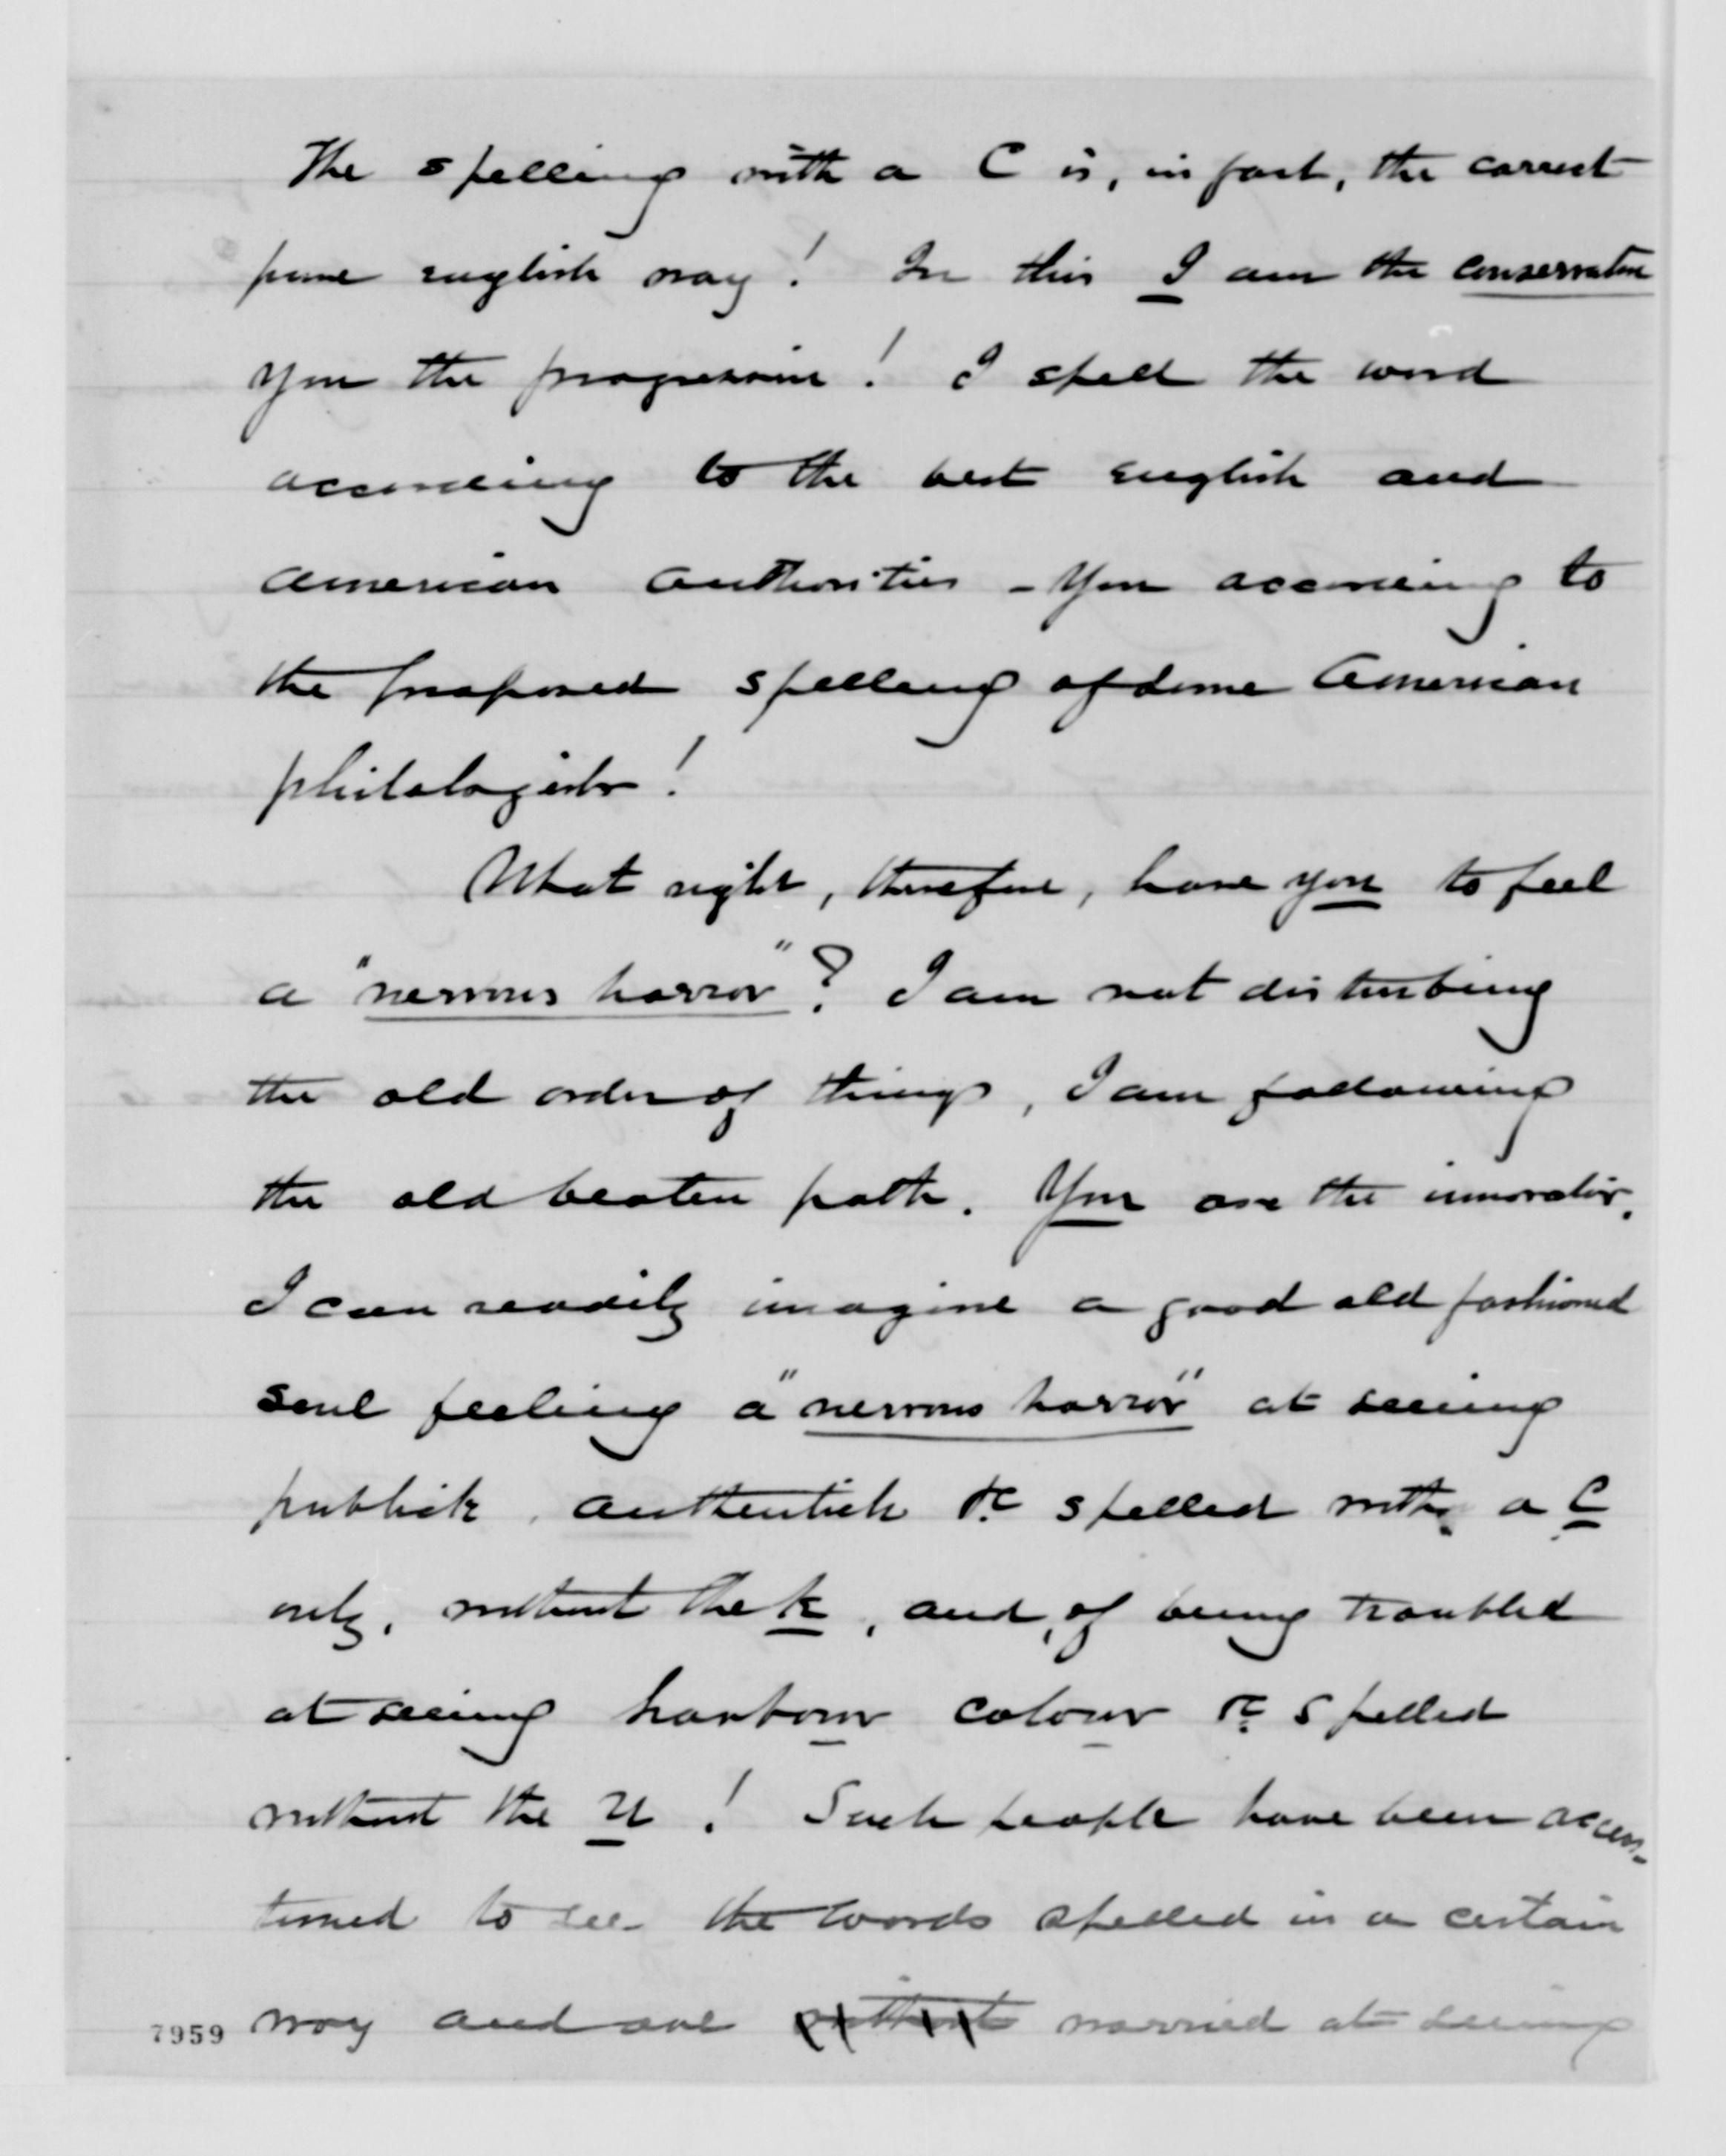 The spelling with a C is, in fact, the correct
pure english way! In this I am the conservative
you the progressive! I spell the word
according to the best english and
American authorities - You according to
the proposed spelling of some American
philologists!
What right, therefore, have you to feel
a "nervous horror"? I am not disturbing
the old order of things, I am following
the old beaten path. You are the innovator.
I can readily imagine a good old fashioned
soul feeling a "nervous horror" at seeing
publick, authentick &c spelled with a C
only, without the k, and, of being troubled
at seeing harbour colour &c spelled
without the u! Such people have been accus-
tomed to see the words spelled in a certain
way and are without worried at seeing
7959